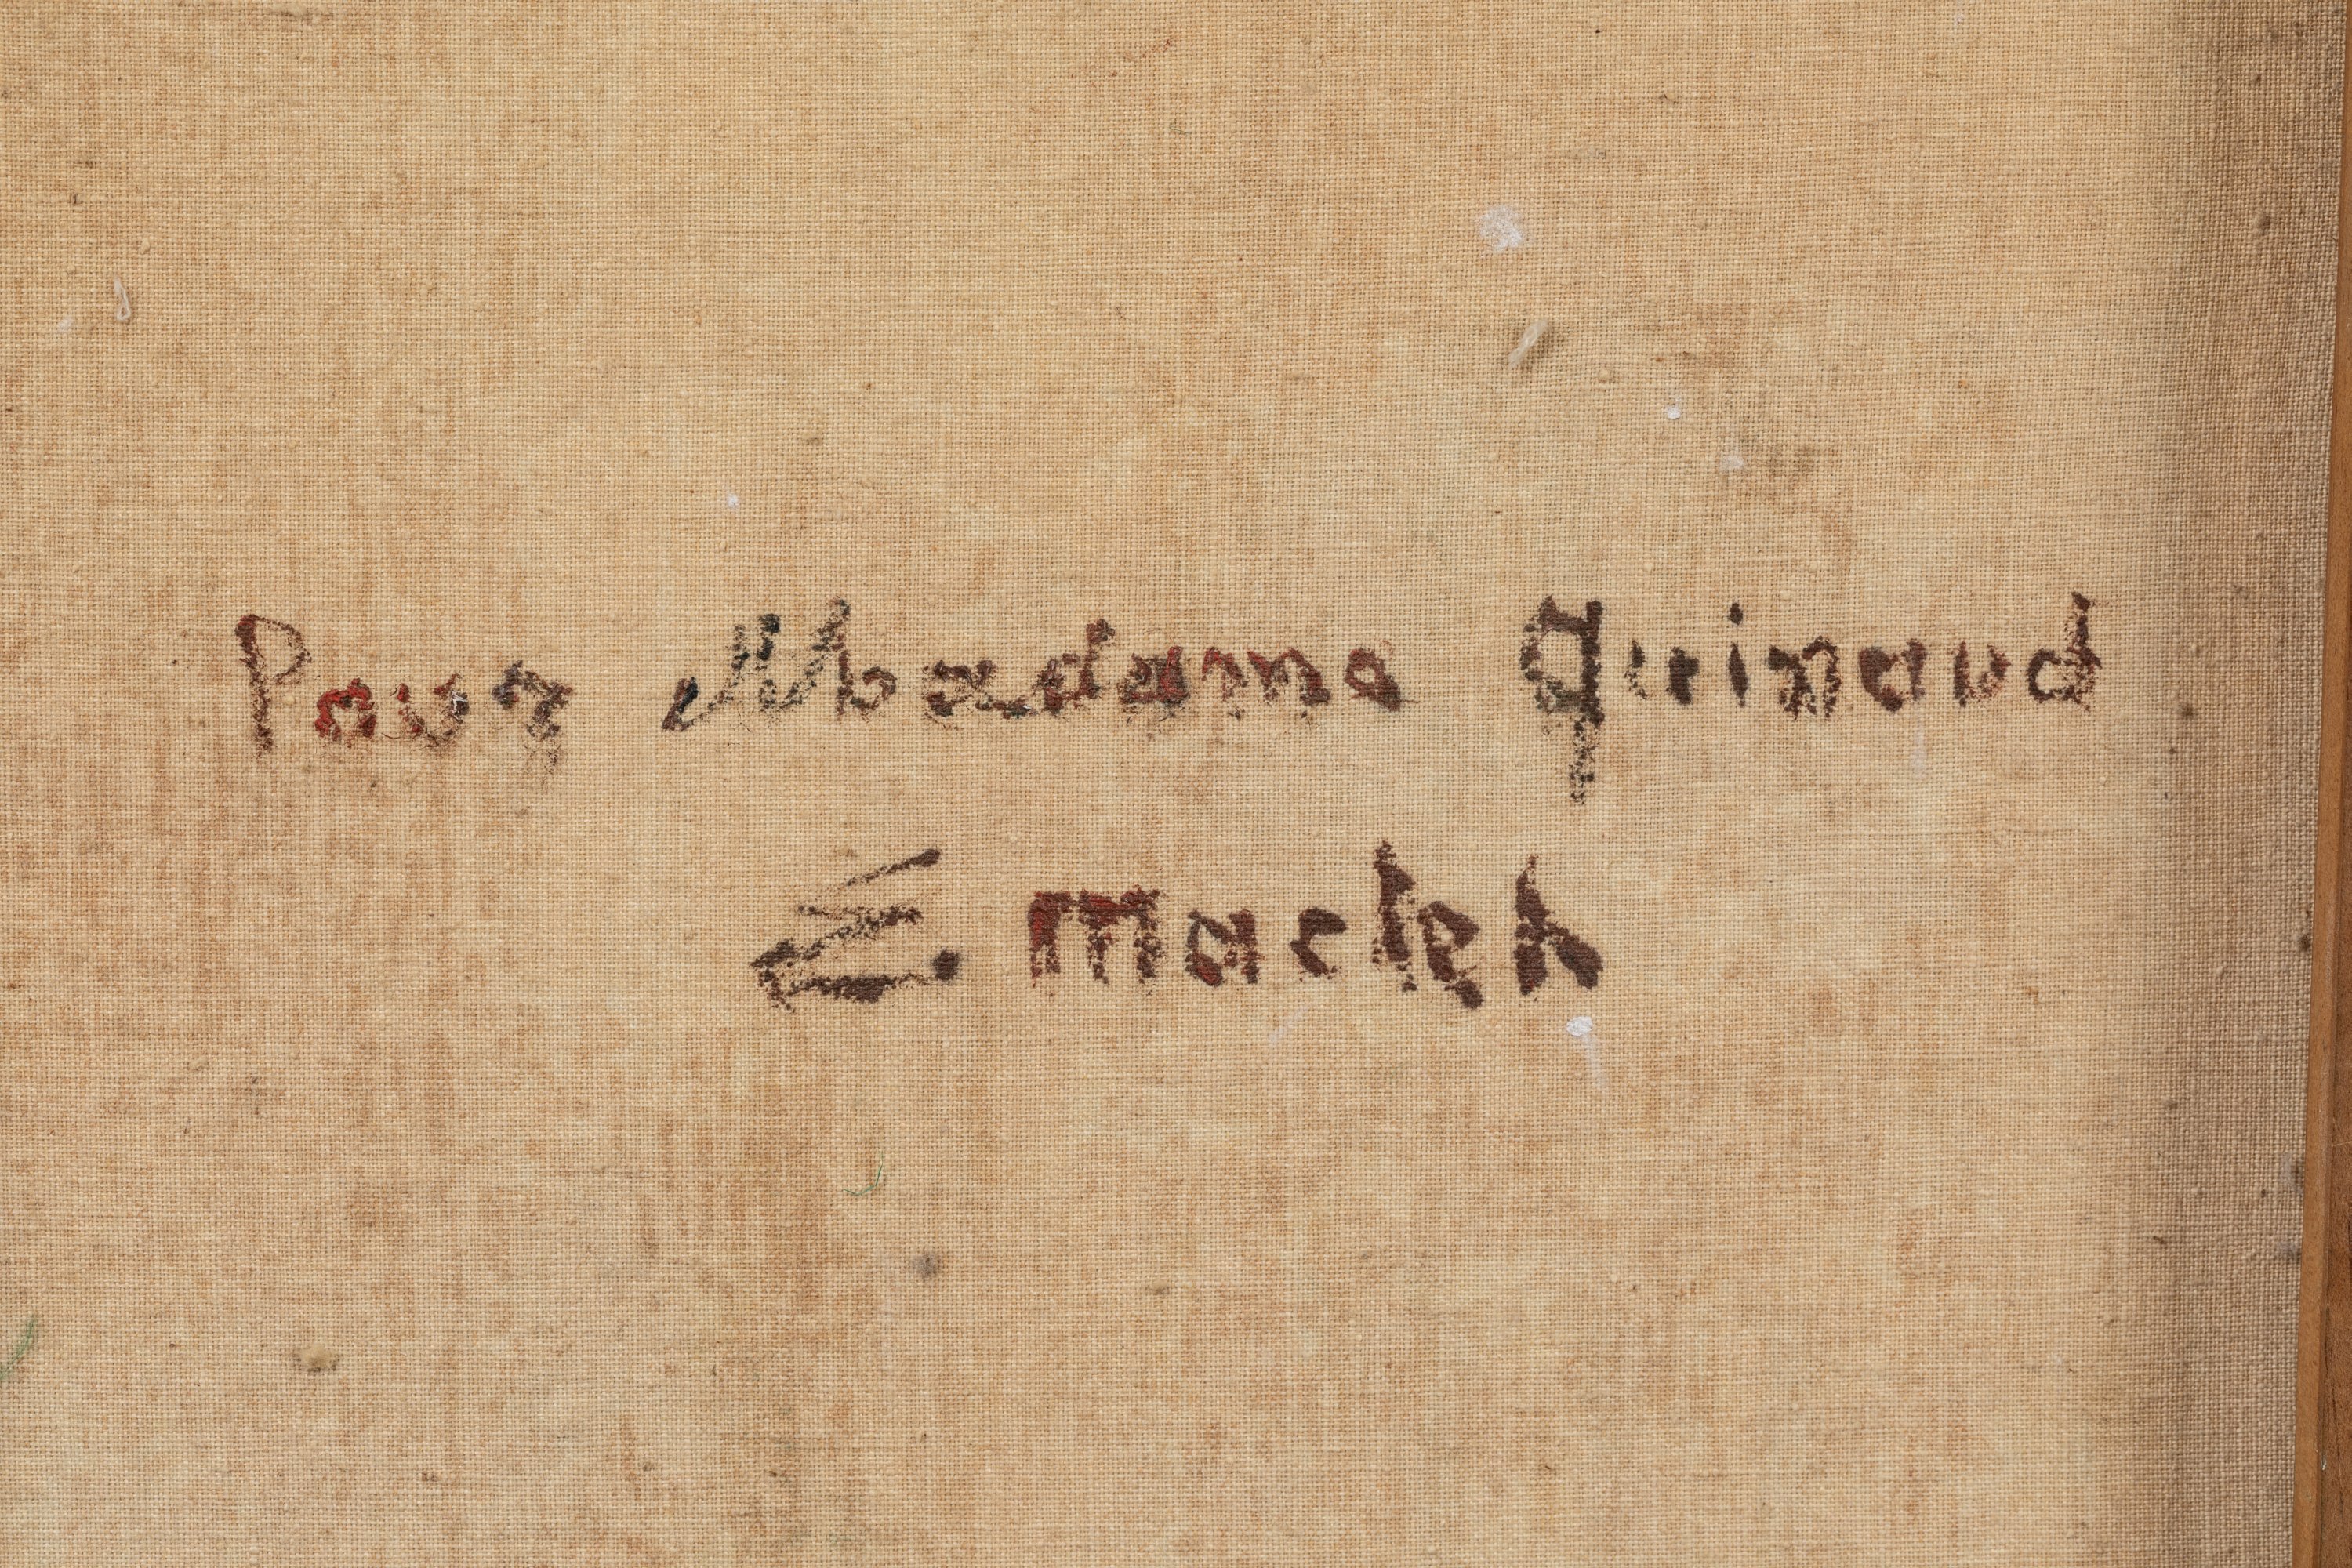 Pour Madame Quinaud
E. Maclet